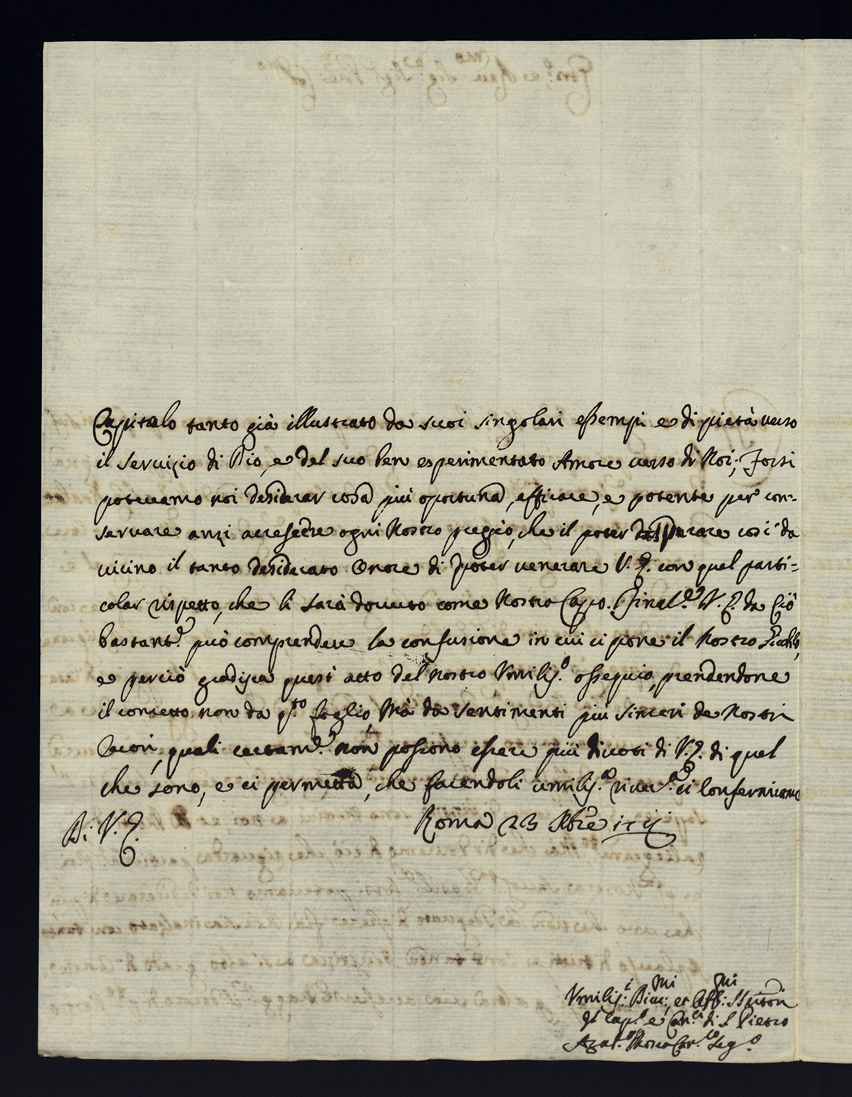 Capitolo tanto già illustrato da suoi singolari essempi e di pietà verso
il servizio di Dio, e del suo ben esperimentato Amore verso di Noi; Forsi
potevamo noi desiderar cosa più oportuna, efficace, e potente per con-
servare anzi accrescere ogni Nostro preggio, che il poter così da
vicino il tanto desiderato Onore di poter venerare V. E. con quel parti-
colar rispetto, che li sarà dovuto come Nostro Capo. Final.te V. E. da ciò
bastant.e può comprendere la confusione in cui ci pone il Nostro
e perciò gradisca questi atto del Nostro Umiliss.o ossequio, prendendone
il concetto non da q.sto foglio, Mà da sentimenti più sinceri de Nostri
Cuori, quali certam.e non possono essere più divoti di V. E. di quel
che sono, e ci permetta, che facendoli umiliss.a river.a ci confermiamo
Di V. E.
Roma 23
Umiliss.i Div.mi et Obb.mi
Il Cap.o e Can.ci di S. Pietro
Can.co Seg.o